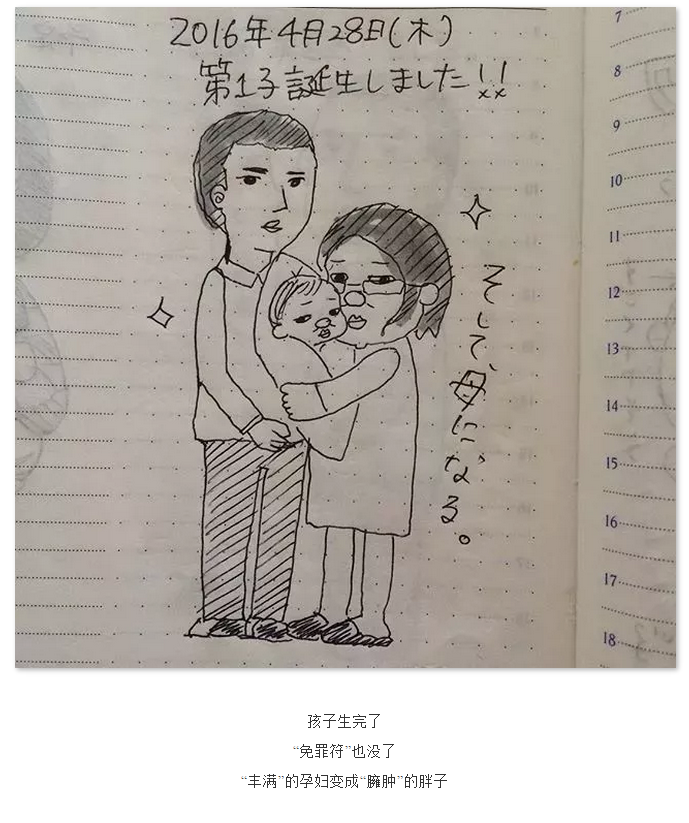 2016年4月28日(木)
第1子誕生しました!!
そして、母になる。
7
8
9
10
11
12
13
14
15
16
17
18
孩子生完了
“免罪符”也没了
“丰满”的孕妇变成“臃肿”的胖子